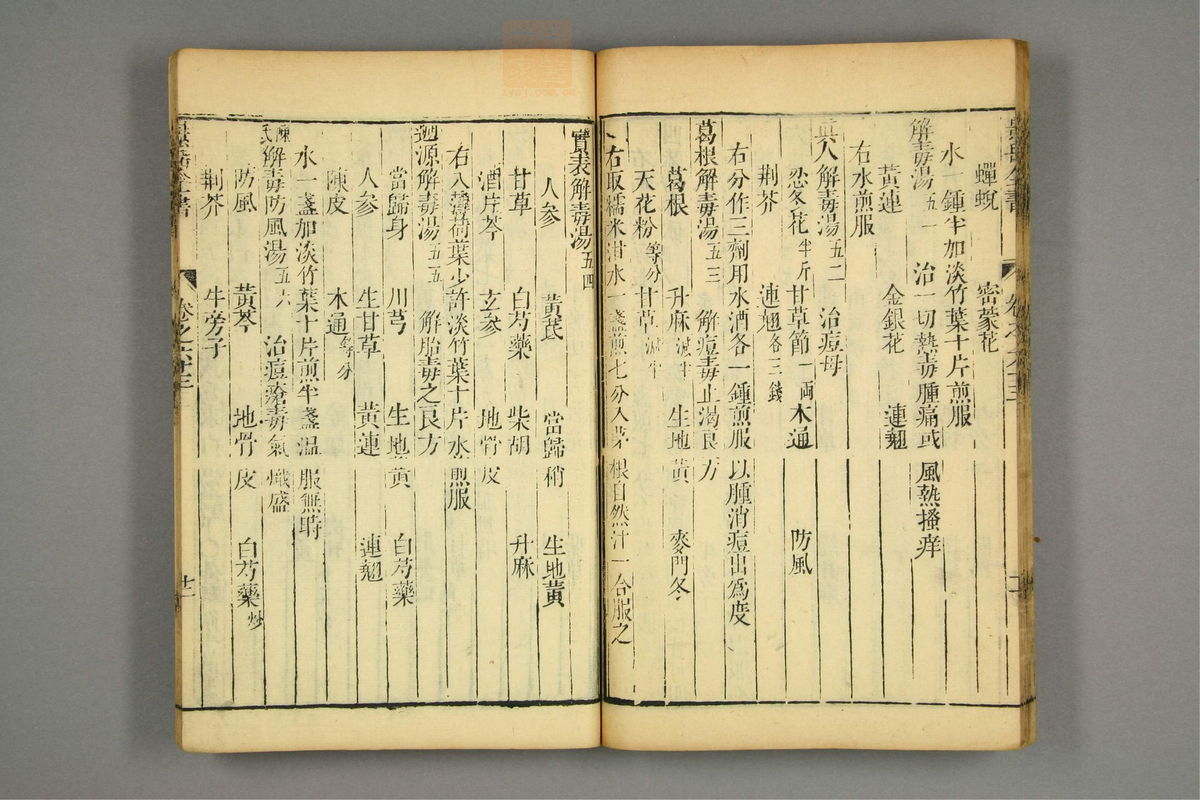 景岳全書 卷之六十三
蟬蛻 密蒙花
水一鍾半加淡竹葉十片煎服
解毒湯五一 治一切熱毒腫痛或風熱搔痒
黃連 金銀花 連翹
右水煎服
真人解毒湯五二 治痘母
忍冬花半斤 甘草節一両 木通 防風
荆芥 連翹各三錢
右分作三劑用水酒各一鍾煎服以腫消痘出為度
葛根解毒湯五三 解痘毒止渴良方
葛根 升麻減半 生地黃 麥門冬
天花粉等分 甘草減半
右取糯米泔水一盞煎七分入茅根自然汁一合服之
實表解毒湯五四
人參 黃芪 當歸稍 生地黃
甘草 白芍藥 柴胡 升麻
酒片芩 玄參 地骨皮
右入薄荷葉少許淡竹葉十片水煎服
遡源解毒湯五五 解胎毒之良方
當歸身 川芎 生地黃 白芍藥
人參 生甘草 黃連 連翹
陳皮 木通等分
水一盞加淡竹葉十片煎半盞温服無時
陳氏解毒防風湯五六 治痘瘡毒氣熾盛
防風 黃芩 地骨皮 白芍藥炒
荆芥 牛旁子
景岳全書 卷之六十三 廿一